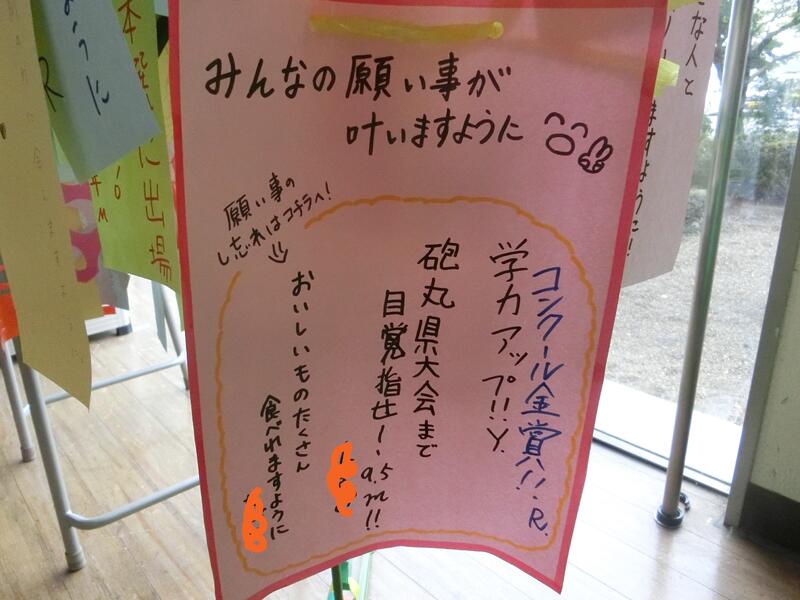 みんなの願い事が
叶いますように
願い事の
し忘れはコチラへ!
コンクール金賞!! R.
学力アップ!! Y.
砲丸県大会まで
目覚指せー、9.5m!!
おいしいものたくさん
食べれますように
ように
R
出場
な人と
ますように!